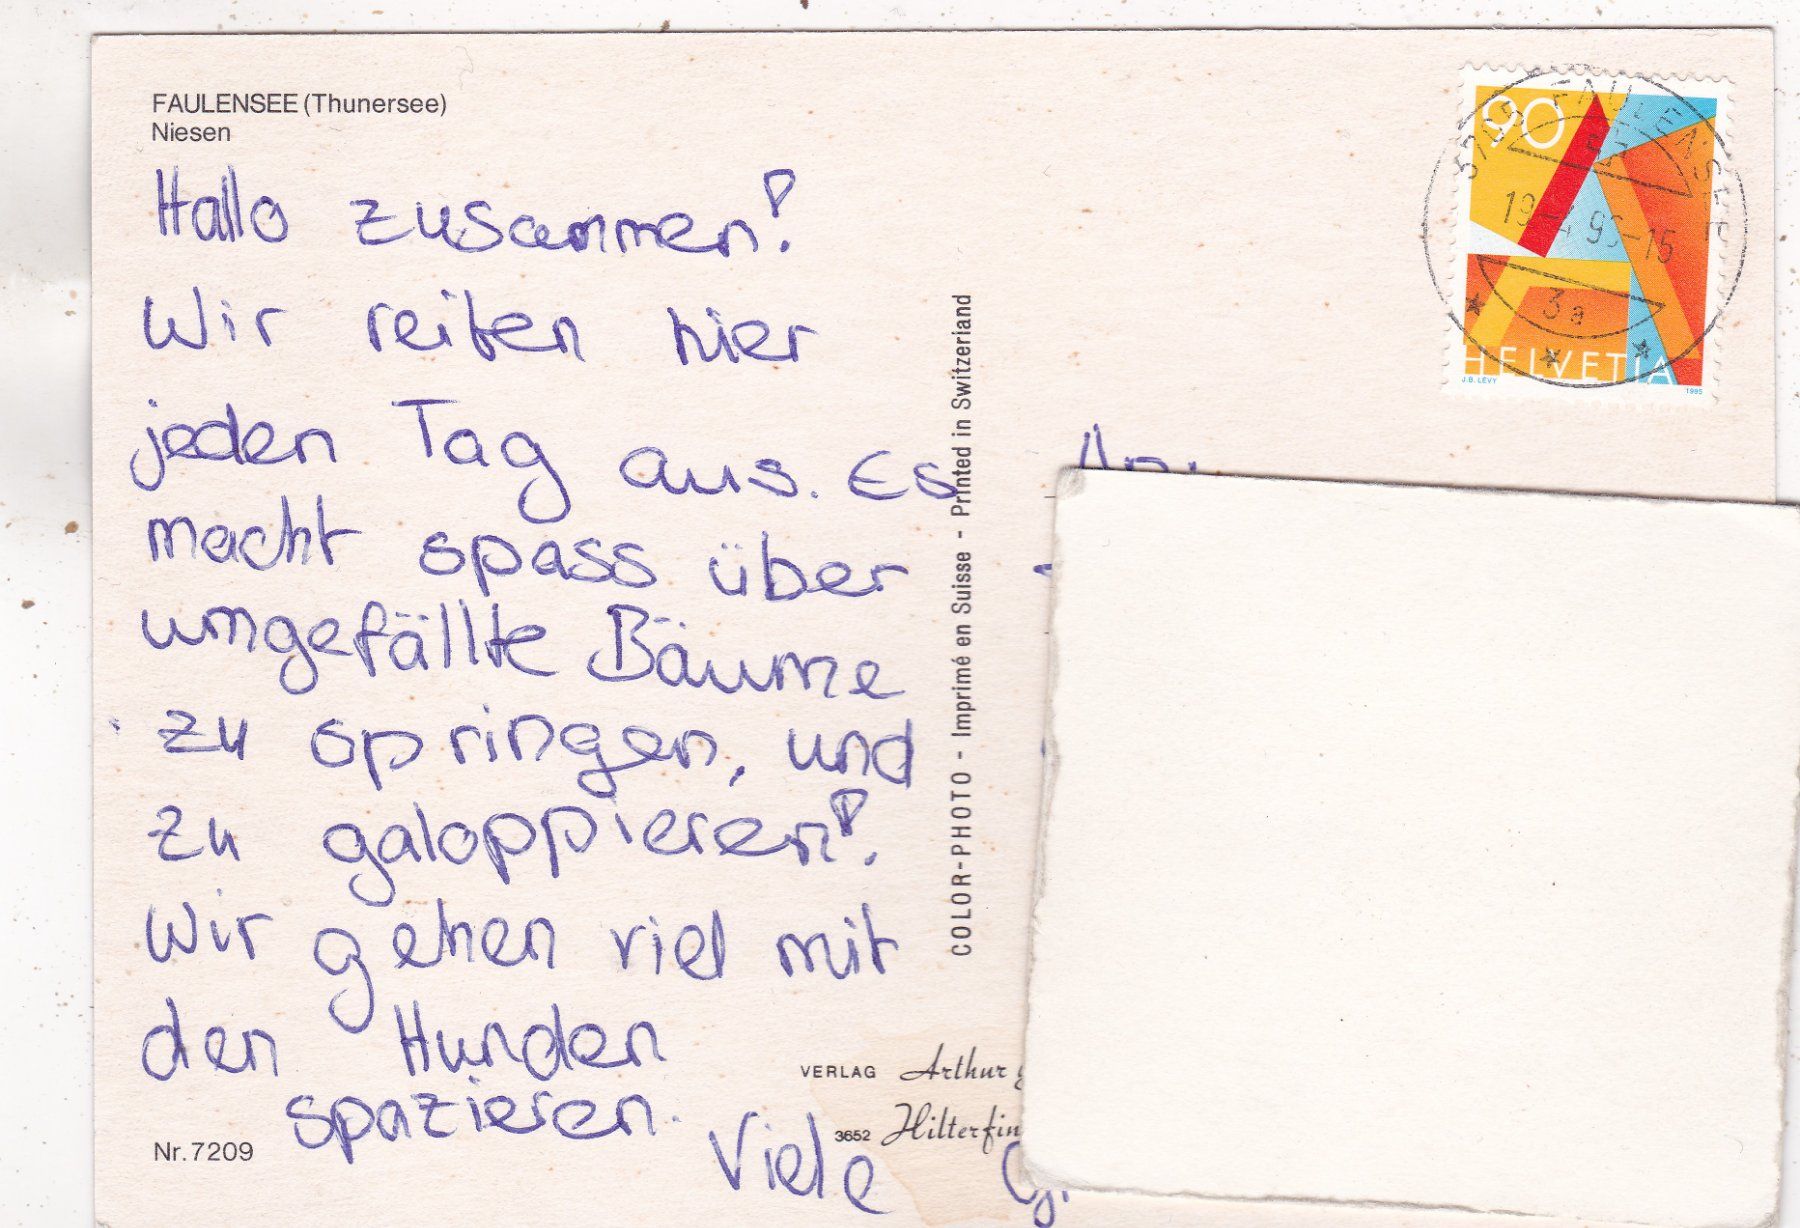 FAULENSEE (Thunersee)
Niesen
Hallo zusammen!
Wir reiten hier
jeden Tag aus. Es
macht spass über
umgefällte Bäume
zu springen, und
zu galoppieren!
Wir gehen viel mit
den Hunden
spazieren.
Viele
Nr. 7209
COLOR-PHOTO - Imprimé en Suisse - Printed in Switzerland
VERLAG Arthur
3652 Hilterfin
90
HELVETIA
J.B. LEVY 1995
3705 FAULENSEE
3a